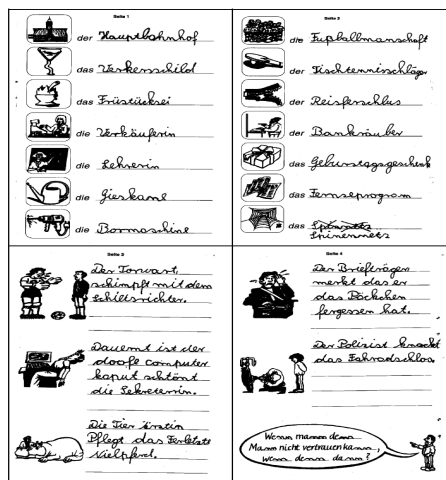 Seite 1
der Hauptbahnhof
das Verkersschild
das Früstücksei
die Verkäuferin
die Lehrerin
die Gieskane
die Bormaschine
Seite 2
die Fußballmanschaft
der Tischtennischläger
der Reisferschlus
der Bankräuber
das Geburstagsgeschenk
das Fernseprogram
das
Spinennetz
Seite 3
Der Torwart
schimpft mit dem
schiltsrichter.
Dauernt ist der
doofe computer
kaput schtönt
die Sekreterrin.
Die Tier ärztin
Pflegt das Ferletzte
Nielpferd.
Seite 4
Der Briefträger
merkt das er
das Päckchen
fergessen hat.
Der Polizist knackt
das Fahradschlos.
Wenn mann denn
Mann nicht vertrauen kann,
wenn denn dann?